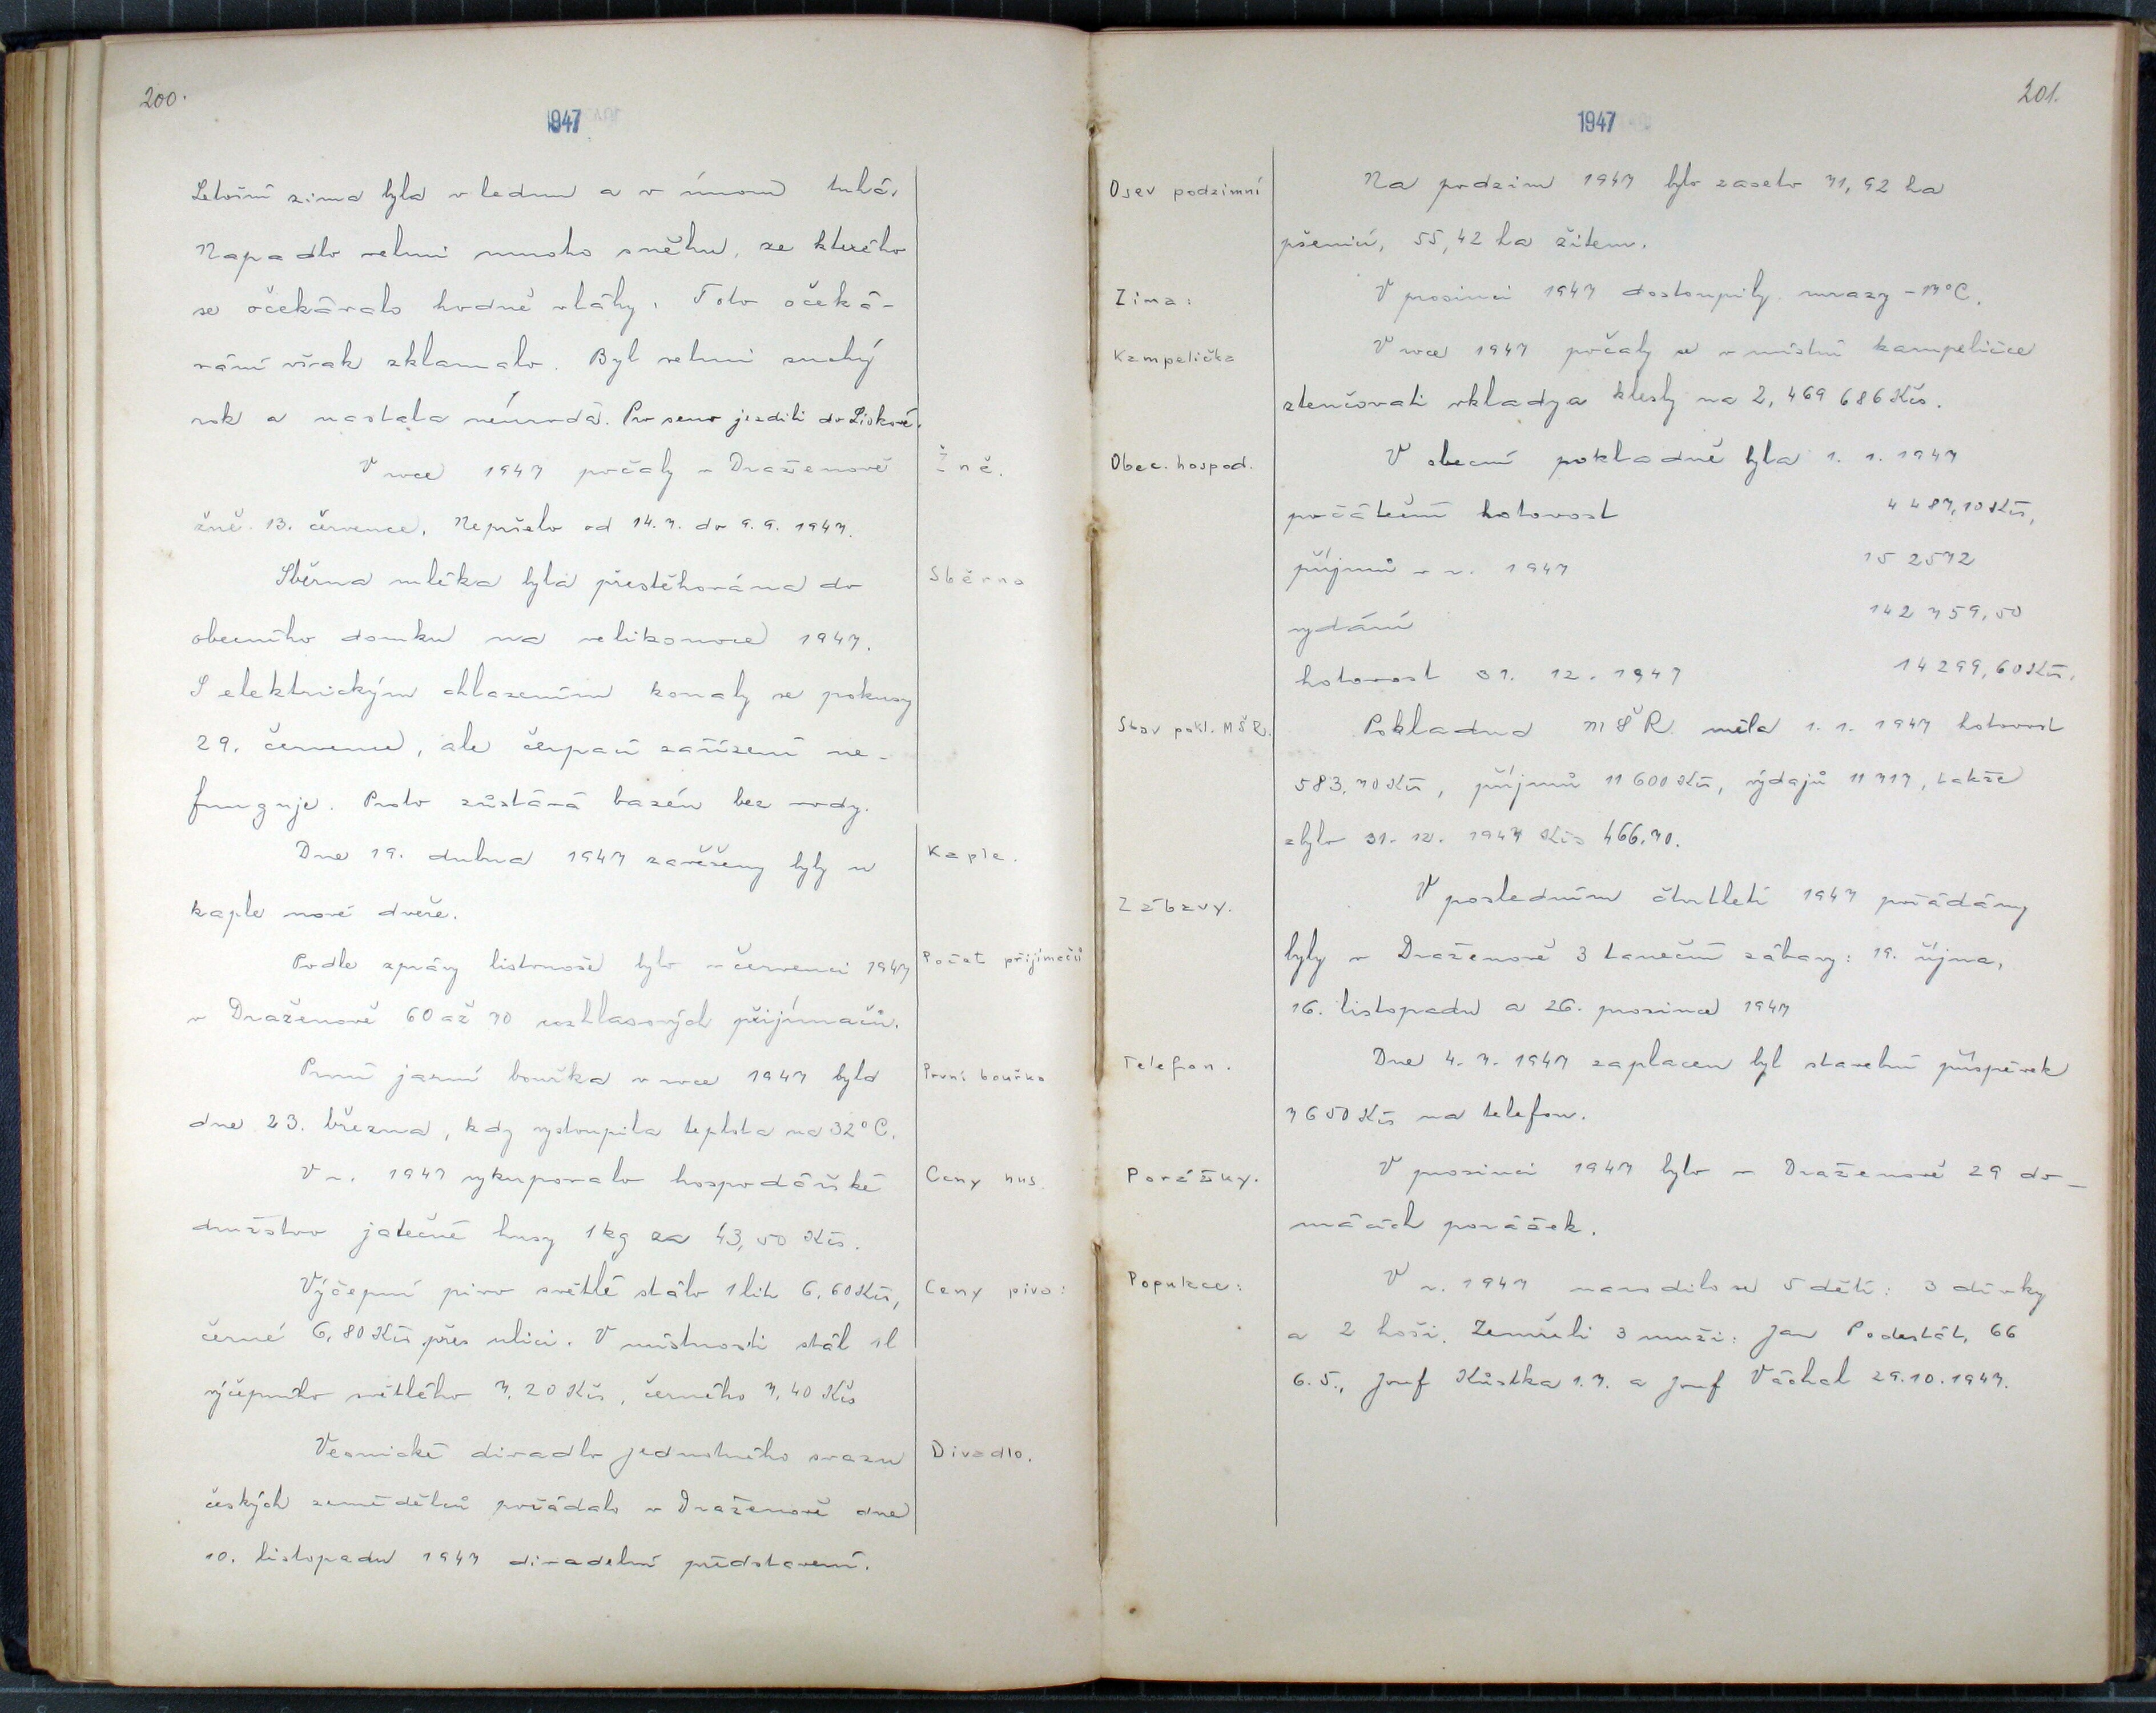 200.
1947
Letošní zima byla v lednu a v únoru tuhá.
Napadlo velmi mnoho sněhu, ze kterého
se očekávalo hodně vláhy. Toto očeká-
vání však zklamalo. Byl velmi suchý
rok a nastala neúroda. Pro seno jezdili do Liskové.
V roce 1947 počaly v Draženově
Žně.
žně 13. července. Nepršelo od 14. 7. do 9. 9. 1947.
Sběrna mléka byla přestěhována do
Sběrna
obecního domku na velikonoce 1947.
S elektrickým chlazením konaly se pokusy
29. července, ale čerpací zařízení ne-
funguje. Proto zůstává bazén bez vody.
Dne 19. dubna 1947 zavěšeny byly u
Kaple.
kaple nové dveře.
Podle zprávy listonoše bylo v červenci 1947
Počet přijímačů
v Draženově 60 až 70 rozhlasových přijímačů.
První jarní bouřka v roce 1947 byla
První bouřka
dne 23. března, kdy vystoupila teplota na 32°C.
V r. 1947 vykupovalo hospodářské
Ceny hus
družstvo jatečné husy 1 kg za 43,50 Kčs.
Výčepní pivo světlé stálo 1 litr 6.60 Kčs,
Ceny piva:
černé 6,80 Kčs přes ulici. V místnosti stál 1 l
výčepního světlého 7,20 Kčs, černého 7,40 Kčs
Vesnické divadlo jednotného svazu
Divadlo.
českých zemědělců pořádalo v Draženově dne
10. listopadu 1947 divadelní představení.
201.
1947
Osev podzimní
Na podzim 1947 bylo zaseto 71,92 ha
pšenicí, 55,42 ha žitem.
Zima:
V prosinci 1947 dostoupily mrazy -17°C.
Kampelička
V roce 1947 počaly se v místní kampeličce
ztenčovati vklady a klesly na 2,469 686 Kčs.
Obec. hospod.
V obecní pokladně byla 1. 1. 1947
počáteční hotovost 4 487,10 Kčs,
příjmů v r. 1947 15 2572
vydání 142 759,50
hotovost 31. 12. 1947 14 299,60 Kčs.
Stav pokl. MŠR.
Pokladna MŠR měla 1. 1. 1947 hotovost
583,70 Kčs, příjmů 11 600 Kčs, výdajů 11 717, takže
zbylo 31. 12. 1947 Kčs 466.70.
Zábavy.
V posledním čtvrtletí 1947 pořádány
byly v Draženově 3 taneční zábavy: 19. října,
16. listopadu a 26. prosince 1947
Telefon.
Dne 4. 7. 1947 zaplacen byl stavební příspěvek
7650 Kčs na telefon.
Porážky.
V prosinci 1947 bylo v Draženově 29 do-
mácích porážek.
Populace:
V r. 1947 narodilo se 5 dětí: 3 dívky
a 2 hoši. Zemřeli 3 muži: Jan Podestát, 66
6. 5., Josef Kůstka 1. 7. a Josef Váchal 29. 10. 1947.